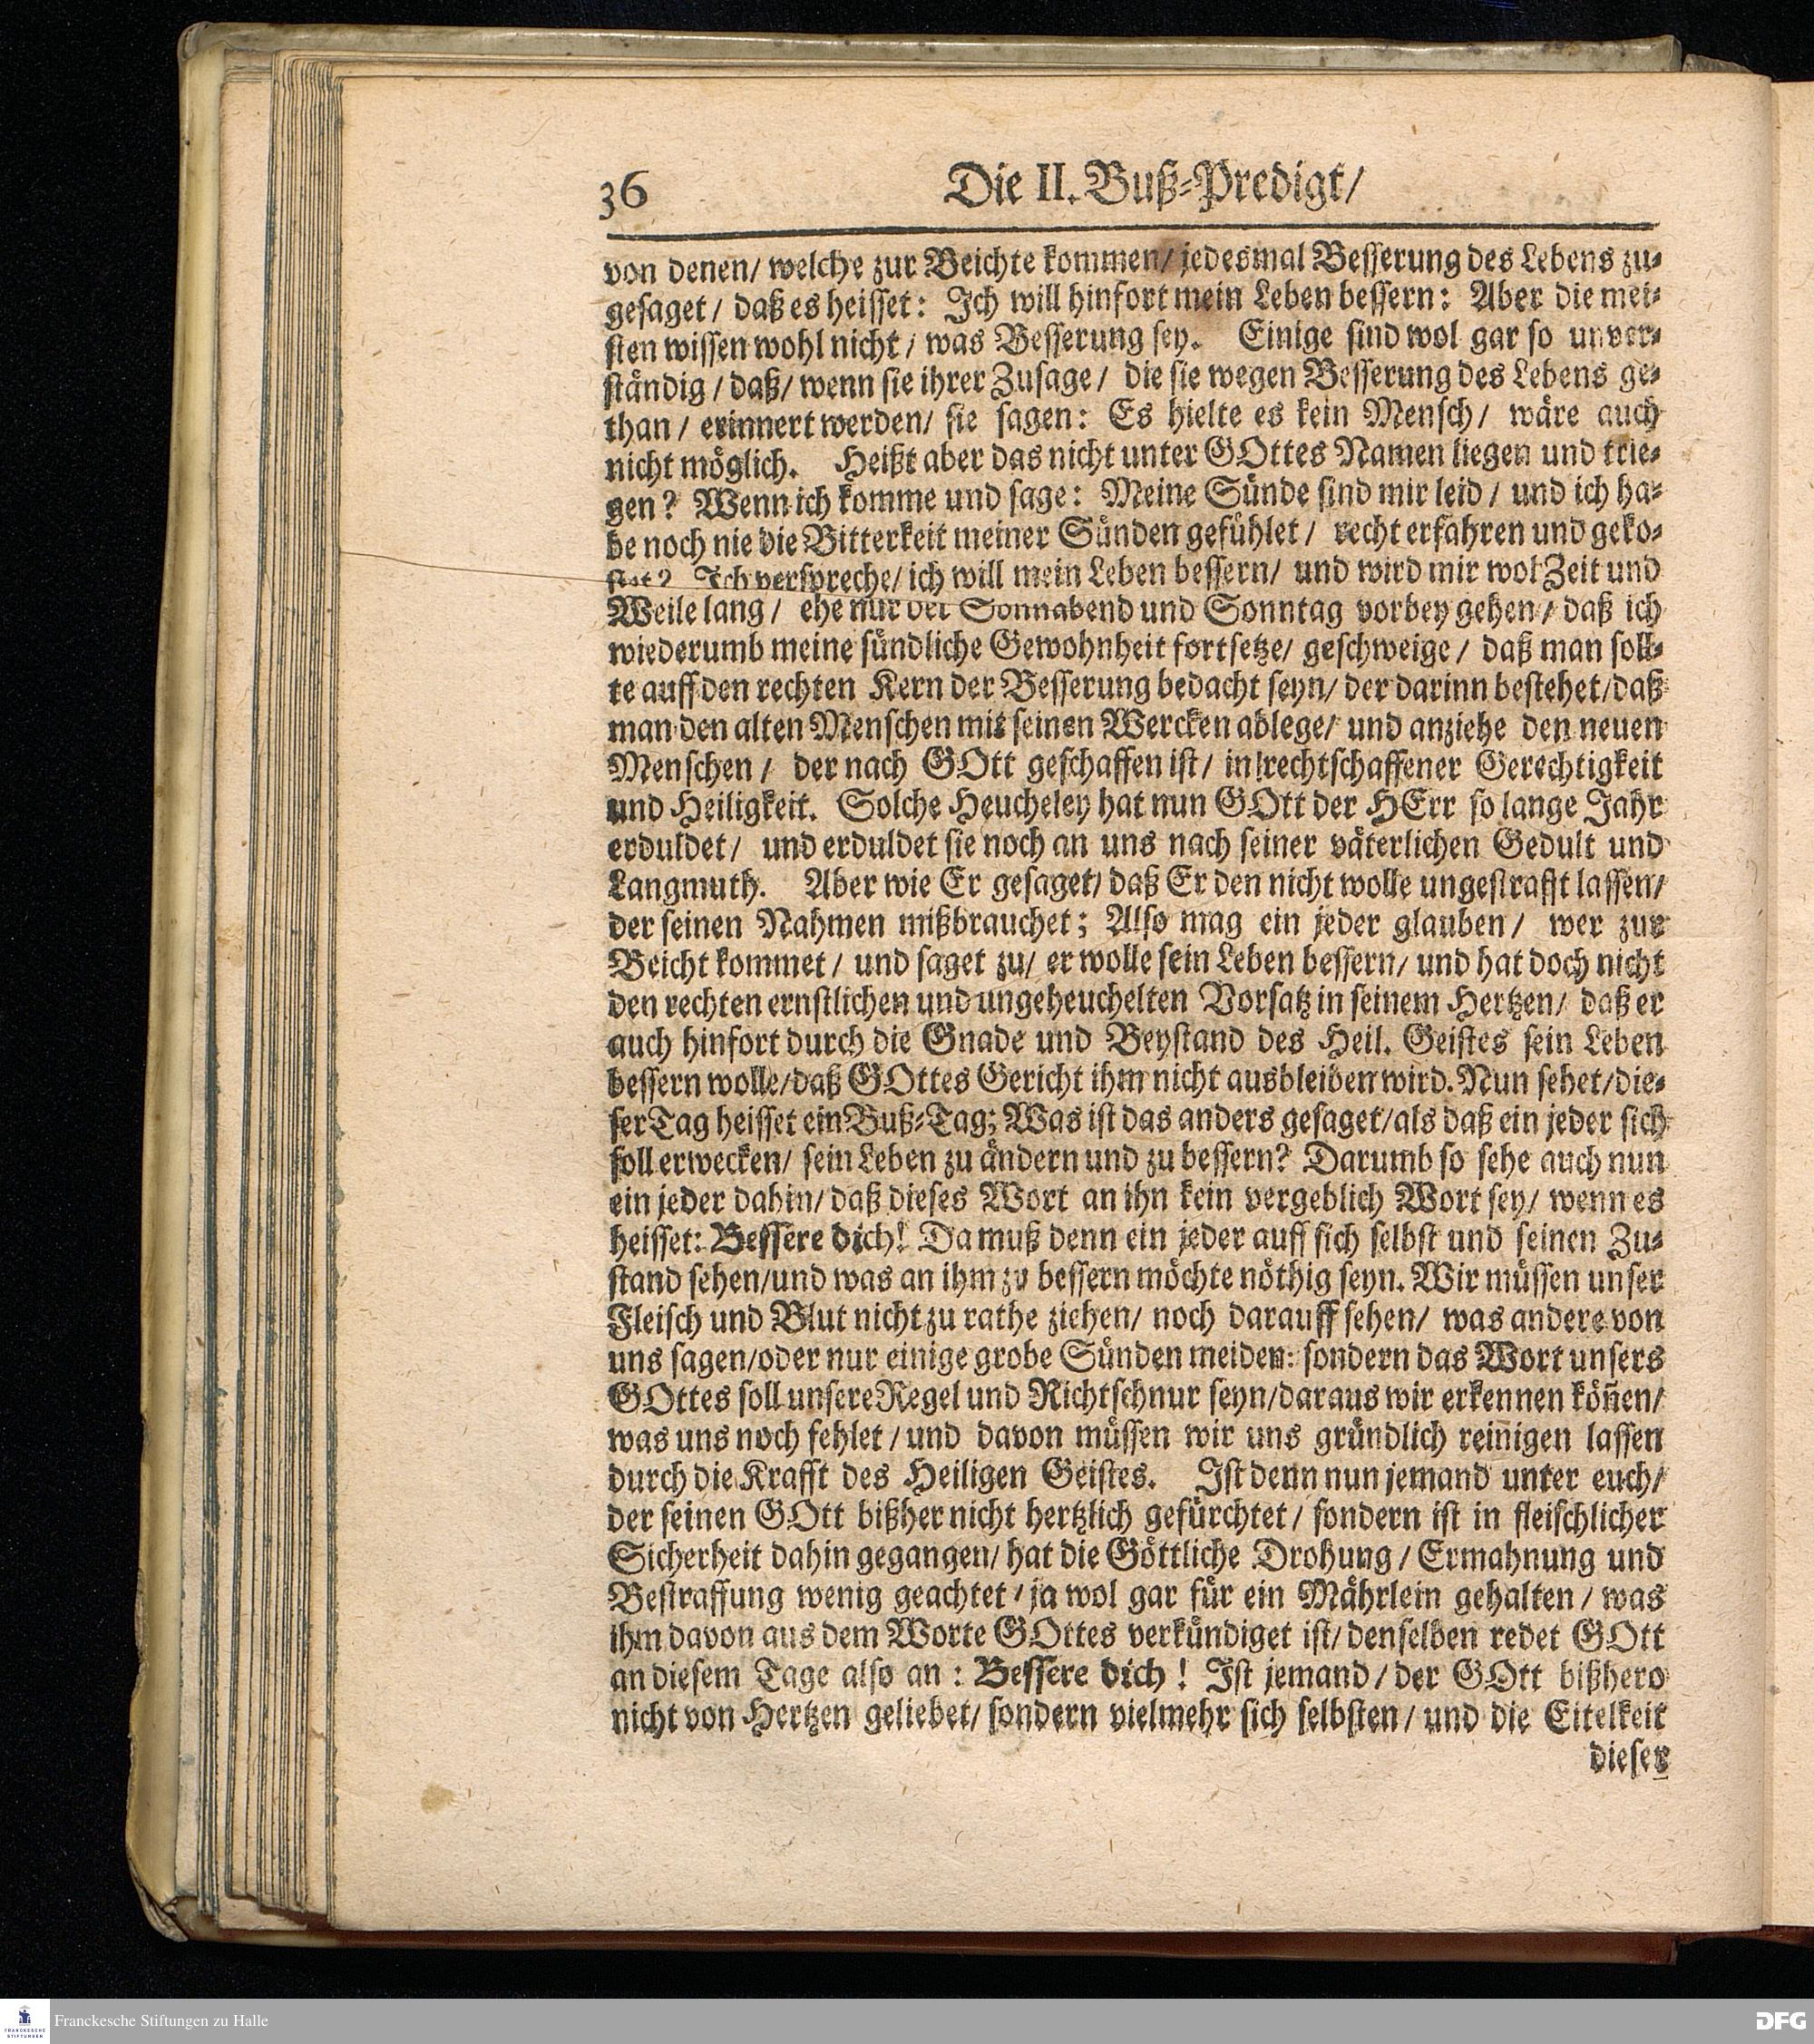 36
Die II. Buß-Predigt/
von denen/ welche zur Beichte kommen/ jedesmal Besserung des Lebens zu-
gesaget/ daß es heisset: Ich will hinfort mein Leben bessern: Aber die mei-
sten wissen wohl nicht/ was Besserung sey. Einige sind wol gar so unver-
ständig/ daß/ wenn sie ihrer Zusage/ die sie wegen Besserung des Lebens ge-
than/ erinnert werden/ sie sagen: Es hielte es kein Mensch/ wäre auch
nicht möglich. Heißt aber das nicht unter GOttes Namen liegen und trie-
gen? Wenn ich komme und sage: Meine Sünde sind mir leid/ und ich ha-
be noch nie die Bitterkeit meiner Sünden gefühlet/ recht erfahren und geko-
stet? Ich verspreche/ ich will mein Leben bessern/ und wird mir wol Zeit und
Weile lang/ ehe nur der Sonnabend und Sonntag vorbey gehen/ daß ich
wiederumb meine sündliche Gewohnheit fortsetze/ geschweige/ daß man soll-
te auff den rechten Kern der Besserung bedacht seyn/ der darinn bestehet/ daß
man den alten Menschen mit seinen Wercken ablege/ und anziehe den neuen
Menschen/ der nach GOtt geschaffen ist/ in rechtschaffener Gerechtigkeit
und Heiligkeit. Solche Heucheley hat nun GOtt der HErr so lange Jahr
erduldet/ und erduldet sie noch an uns nach seiner väterlichen Gedult und
Langmuth. Aber wie Er gesaget/ daß Er den nicht wolle ungestrafft lassen/
der seinen Nahmen mißbrauchet; Also mag ein jeder glauben/ wer zur
Beicht kommet/ und saget zu/ er wolle sein Leben bessern/ und hat doch nicht
den rechten ernstlichen und ungeheuchelten Vorsatz in seinem Hertzen/ daß er
auch hinfort durch die Gnade und Beystand des Heil. Geistes sein Leben
bessern wolle/ daß GOttes Gericht ihm nicht ausbleiben wird. Nun sehet/ die-
ser Tag heisset ein Buß-Tag; Was ist das anders gesaget/ als daß ein jeder sich
soll erwecken/ sein Leben zu ändern und zu bessern? Darumb so sehe auch nun
ein jeder dahin/ daß dieses Wort an ihn kein vergeblich Wort sey/ wenn es
heisset: Bessere dich! Da muß denn ein jeder auff sich selbst und seinen Zu-
stand sehen/ und was an ihm zu bessern möchte nöthig seyn. Wir müssen unser
Fleisch und Blut nicht zu rathe ziehen/ noch darauff sehen/ was andere von
uns sagen/ oder nur einige grobe Sünden meiden: sondern das Wort unsers
GOttes soll unsere Regel und Richtschnur seyn/ daraus wir erkennen köñen/
was uns noch fehlet/ und davon müssen wir uns gründlich reinigen lassen
durch die Krafft des Heiligen Geistes. Ist denn nun jemand unter euch/
der seinen GOtt bißher nicht hertzlich gefürchtet/ sondern ist in fleischlicher
Sicherheit dahin gegangen/ hat die Göttliche Drohung/ Ermahnung und
Bestraffung wenig geachtet/ ja wol gar für ein Mährlein gehalten/ was
ihm davon aus dem Worte GOttes verkündiget ist/ denselben redet GOtt
an diesem Tage also an: Bessere dich! Ist jemand/ der GOtt bißhero
nicht von Hertzen geliebet/ sondern vielmehr sich selbsten/ und die Eitelkeit
dieser
FRANCKESCHE
STIFTUNGEN
Franckesche Stiftungen zu Halle
DFG